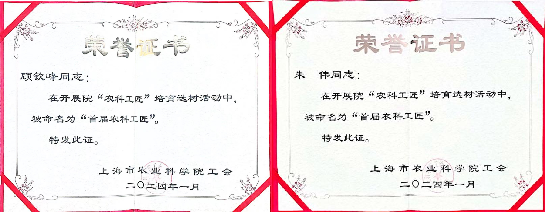 荣誉证书
顾钦峰同志：
在开展院“农科工匠”培育选材活动中，
被命名为“首届农科工匠”。
特发此证。
上海市农业科学院工会
二〇二四年一月
荣誉证书
朱 伟同志：
在开展院“农科工匠”培育选材活动中，
被命名为“首届农科工匠”。
特发此证。
上海市农业科学院工会
二〇二四年一月